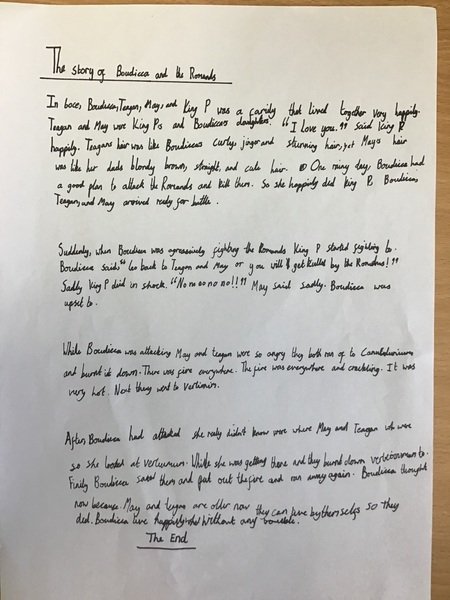 The story of Boudicca and the Romands
In 60ce, Boudicca, Teagan, May, and King P was a family that lived together very happily.
Teagan and May were King Ps and Boudiccas daughters. "I love you." said King P
happily. Teagans hair was like Boudiccas curly, ginger and stunning hair, yet Mays hair
was like her dads blondy brown, straight, and cute hair. One rainy day, Boudicca had
a good plan to attack the Romands and kill them. So she happily did king P, Boudicca,
Teagan, and May arrived ready for battle.
Suddenly, when Boudicca was agressively fighting the Romands King P started fighting to.
Boudicca said: "Go back to Teagan and May or you will get killed by the Romands!"
Sadly King P did in shock. "No no no no!!" May said sadly. Boudicca was
upset to.
While Boudicca was attacking May and teagan were so angry they both ran of to
and burnt it down. There was fire everywhere. The fire was everywhere and crackling. It was
very hot. Next they went to
After Boudicca had attacked she realy didn't know were where May and Teagan were
so she looked at While she was getting there and they burnt down to.
Finily Boudicca saw them and put out the fire and ran away again. Boudicca thought
now because May and teagan are older now they can live by themselfs so they
did. Boudicca live happily without any trouble.
The End